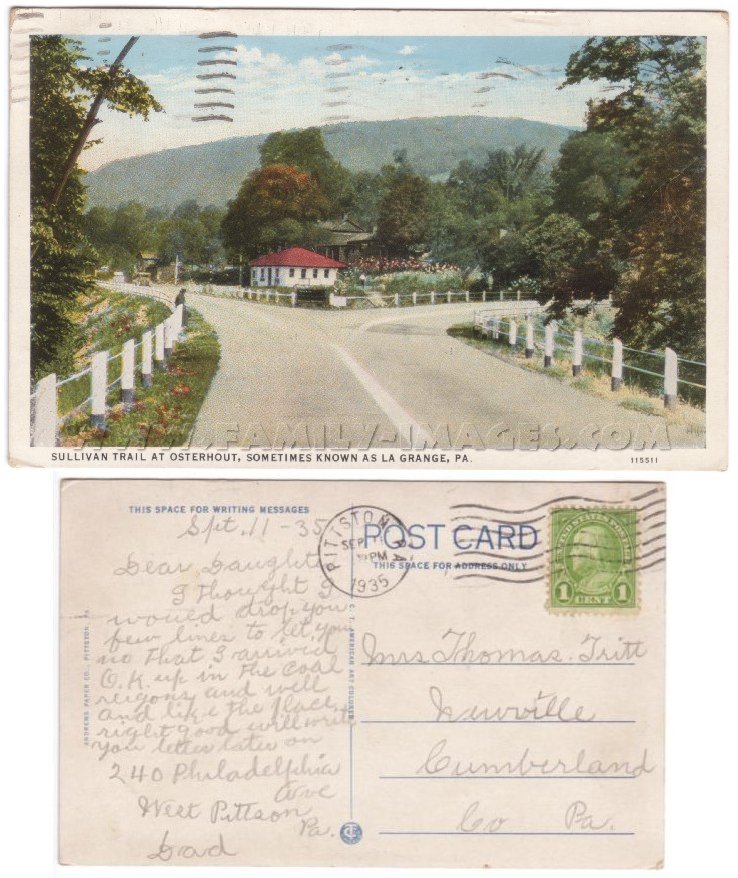 WWW.FAMILY-IMAGES.COM
SULLIVAN TRAIL AT OSTERHOUT, SOMETIMES KNOWN AS LA GRANGE, PA.
115511
THIS SPACE FOR WRITING MESSAGES
Spt, 11 - 35
Dear Daughter
I thought I
would drop you
few lines to let you
no that I arrived
O.K. up in the coal
reigons and well
and like the place
right good will write
you letter later on
240 Philadelphia
Ave
West Pittson
Pa.
Dad
ANDREWS PAPER CO., PITTSTON, PA.
C. T. AMERICAN ART COLORED
PITTSTON PA
SEP
PM
1935
POST CARD
THIS SPACE FOR ADDRESS ONLY
UNITED STATES POSTAGE
1 CENT 1
Mrs Thomas. Tritt
Newville
Cumberland
Co Pa.